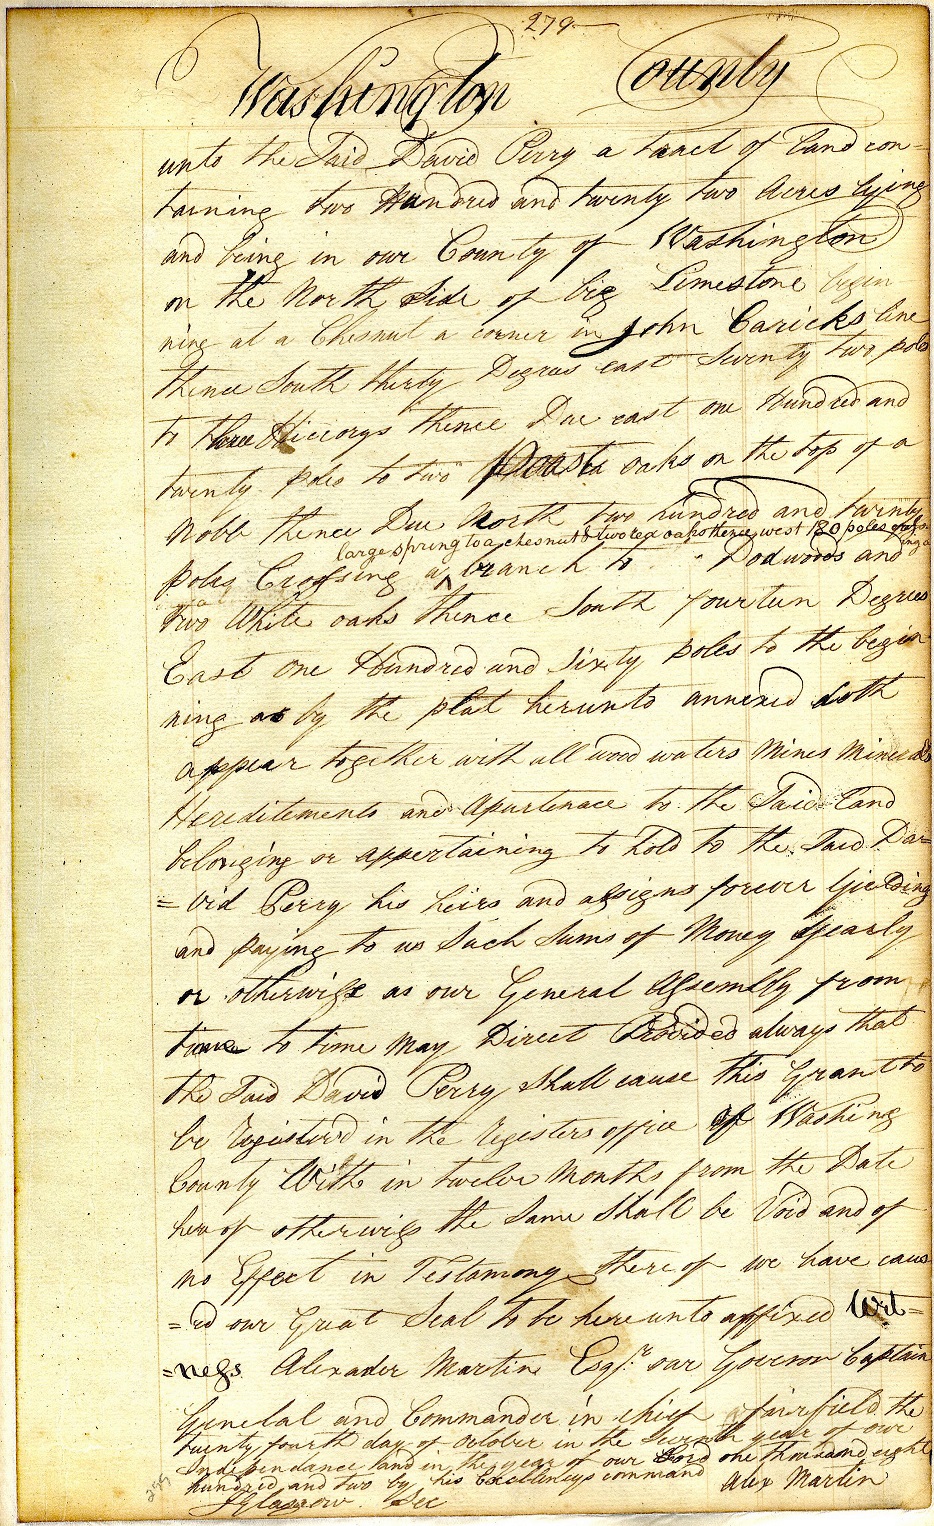 279
Washington County
unto the Said David Perry a tract of Land con-
taining two Hundred and twenty two Acres lying
and being in our County of Washington
on the North Side of big Limestone begin
ning at a Chesnut a corner in John Caricks line
thence South thirty Degrees east Seventy two poles
to three Hiccorys thence Due east one Hundred and
twenty poles to two Poasta oaks on the top of a
Nobb thence Due North two hundred and twenty
large spring to a chesnut & two red oaks thence west 180 poles crossing a
poles Crossing a branch to Dodwoods and
two White oaks thence South fourteen Degrees
East one Hundred and Sixty poles to the begin
ning as by the plat herunto annexed doth
appear together with all wood waters Mines Minerals
Hereditements and Apurtenace to the Said Land
belonging or appertaining to hold to the Said Da=
=vid Perry his heirs and assigns forever Yielding
and paying to us Such Sums of Money Yearly
or otherwise as our General Assembly from
time to time May Direct Provided always that
the Said David Perry Shall cause this Grant to
be Registerd in the Registers office of Washing
County With in twelve Months from the Date
herof otherwise the Same Shall be Void and of
no Effect in Testamony there of we have caus
=ed our Great Seal to be hereunto affixed Wit=
=ness Alexader Martin Esqr. our Goveror Captain
General and Commander in chief fairfield the
twenty fourth day of October in the Seventh year of our
Independance land in the year of our Lord one thousand eight
hundred and two by his Excellencys command Alex Martin
J Glasgow Sec